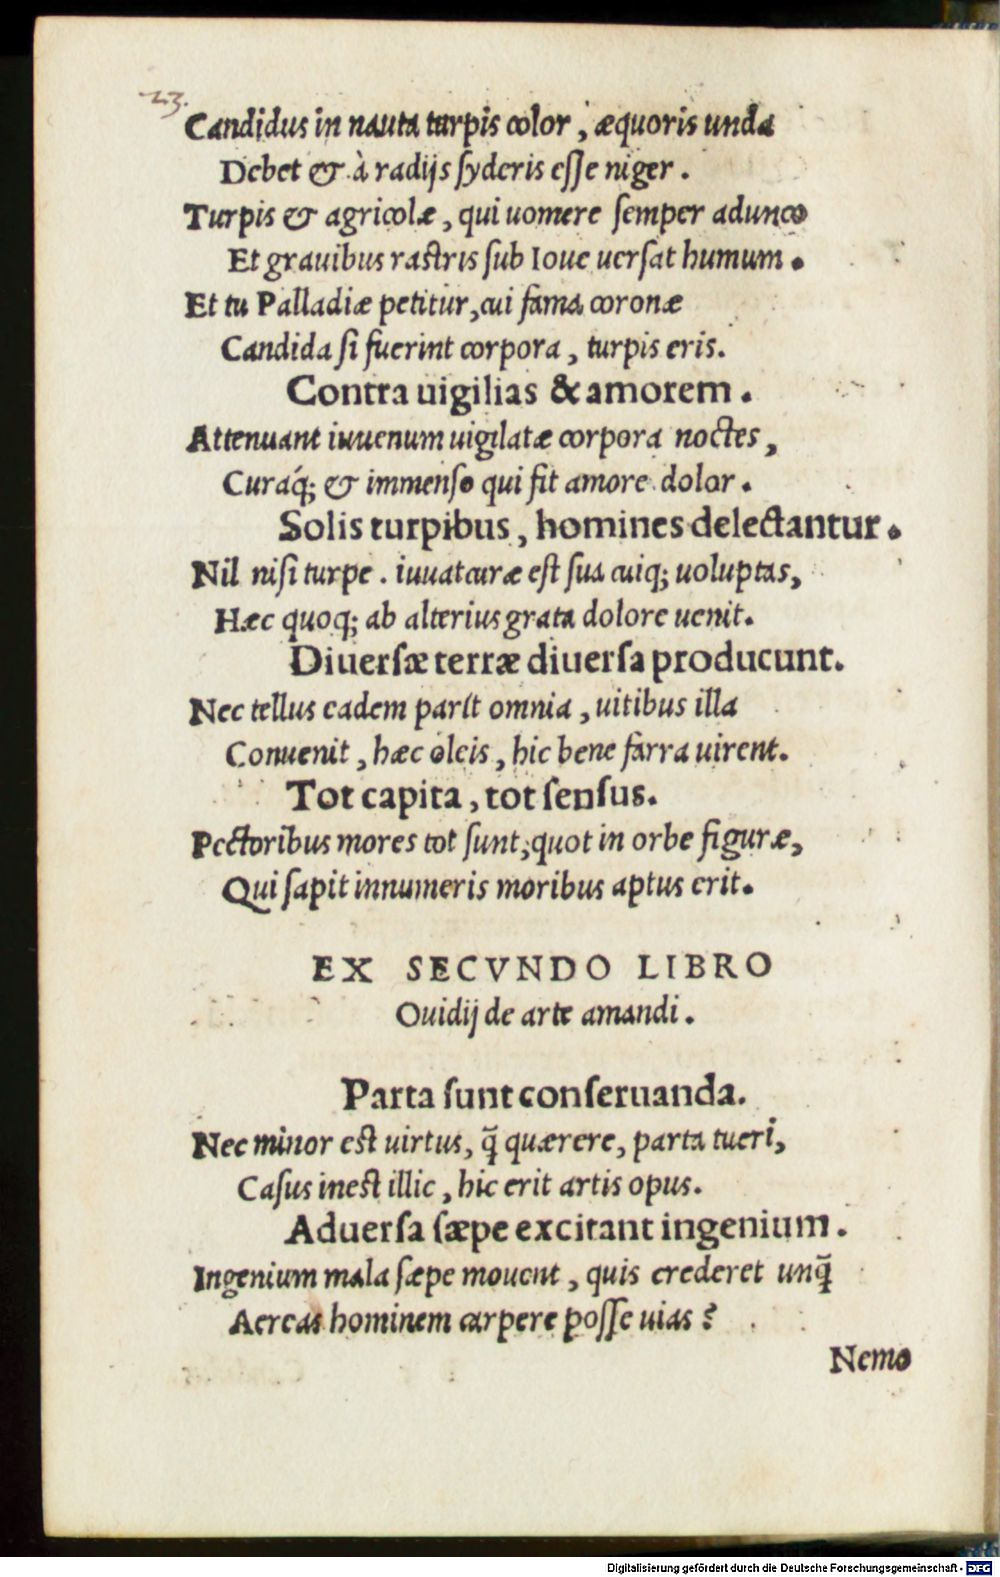 23.
Candidus in nauta turpis color, æquoris unda
Debet & à radijs syderis esse niger.
Turpis & agricolæ, qui uomere semper adunco
Et grauibus rastris sub Ioue uersat humum.
Et tu Palladiæ petitur, cui fama coronæ
Candida si fuerint corpora, turpis eris.
Contra uigilias & amorem.
Attenuant iuuenum uigilatæ corpora noctes,
Curaq́; & immenso qui fit amore dolor.
Solis turpibus, homines delectantur.
Nil nisi turpe. iuuat curæ est sua cuiq; uoluptas,
Hæc quoq; ab alterius grata dolore uenit.
Diuersæ terræ diuersa producunt.
Nec tellus eadem parit omnia, uitibus illa
Conuenit, hæc oleis, hic bene farra uirent.
Tot capita, tot sensus.
Pectoribus mores tot sunt, quot in orbe figuræ,
Qui sapit innumeris moribus aptus erit.
EX SECVNDO LIBRO
Ouidij de arte amandi.
Parta sunt conseruanda.
Nec minor est uirtus, q̃ quærere, parta tueri,
Casus inest illic, hic erit artis opus.
Aduersa sæpe excitant ingenium.
Ingenium mala sæpe mouent, quis crederet unq̃
Aereas hominem carpere posse uias?
Nemo
Digitalisierung gefördert durch die Deutsche Forschungsgemeinschaft - DFG